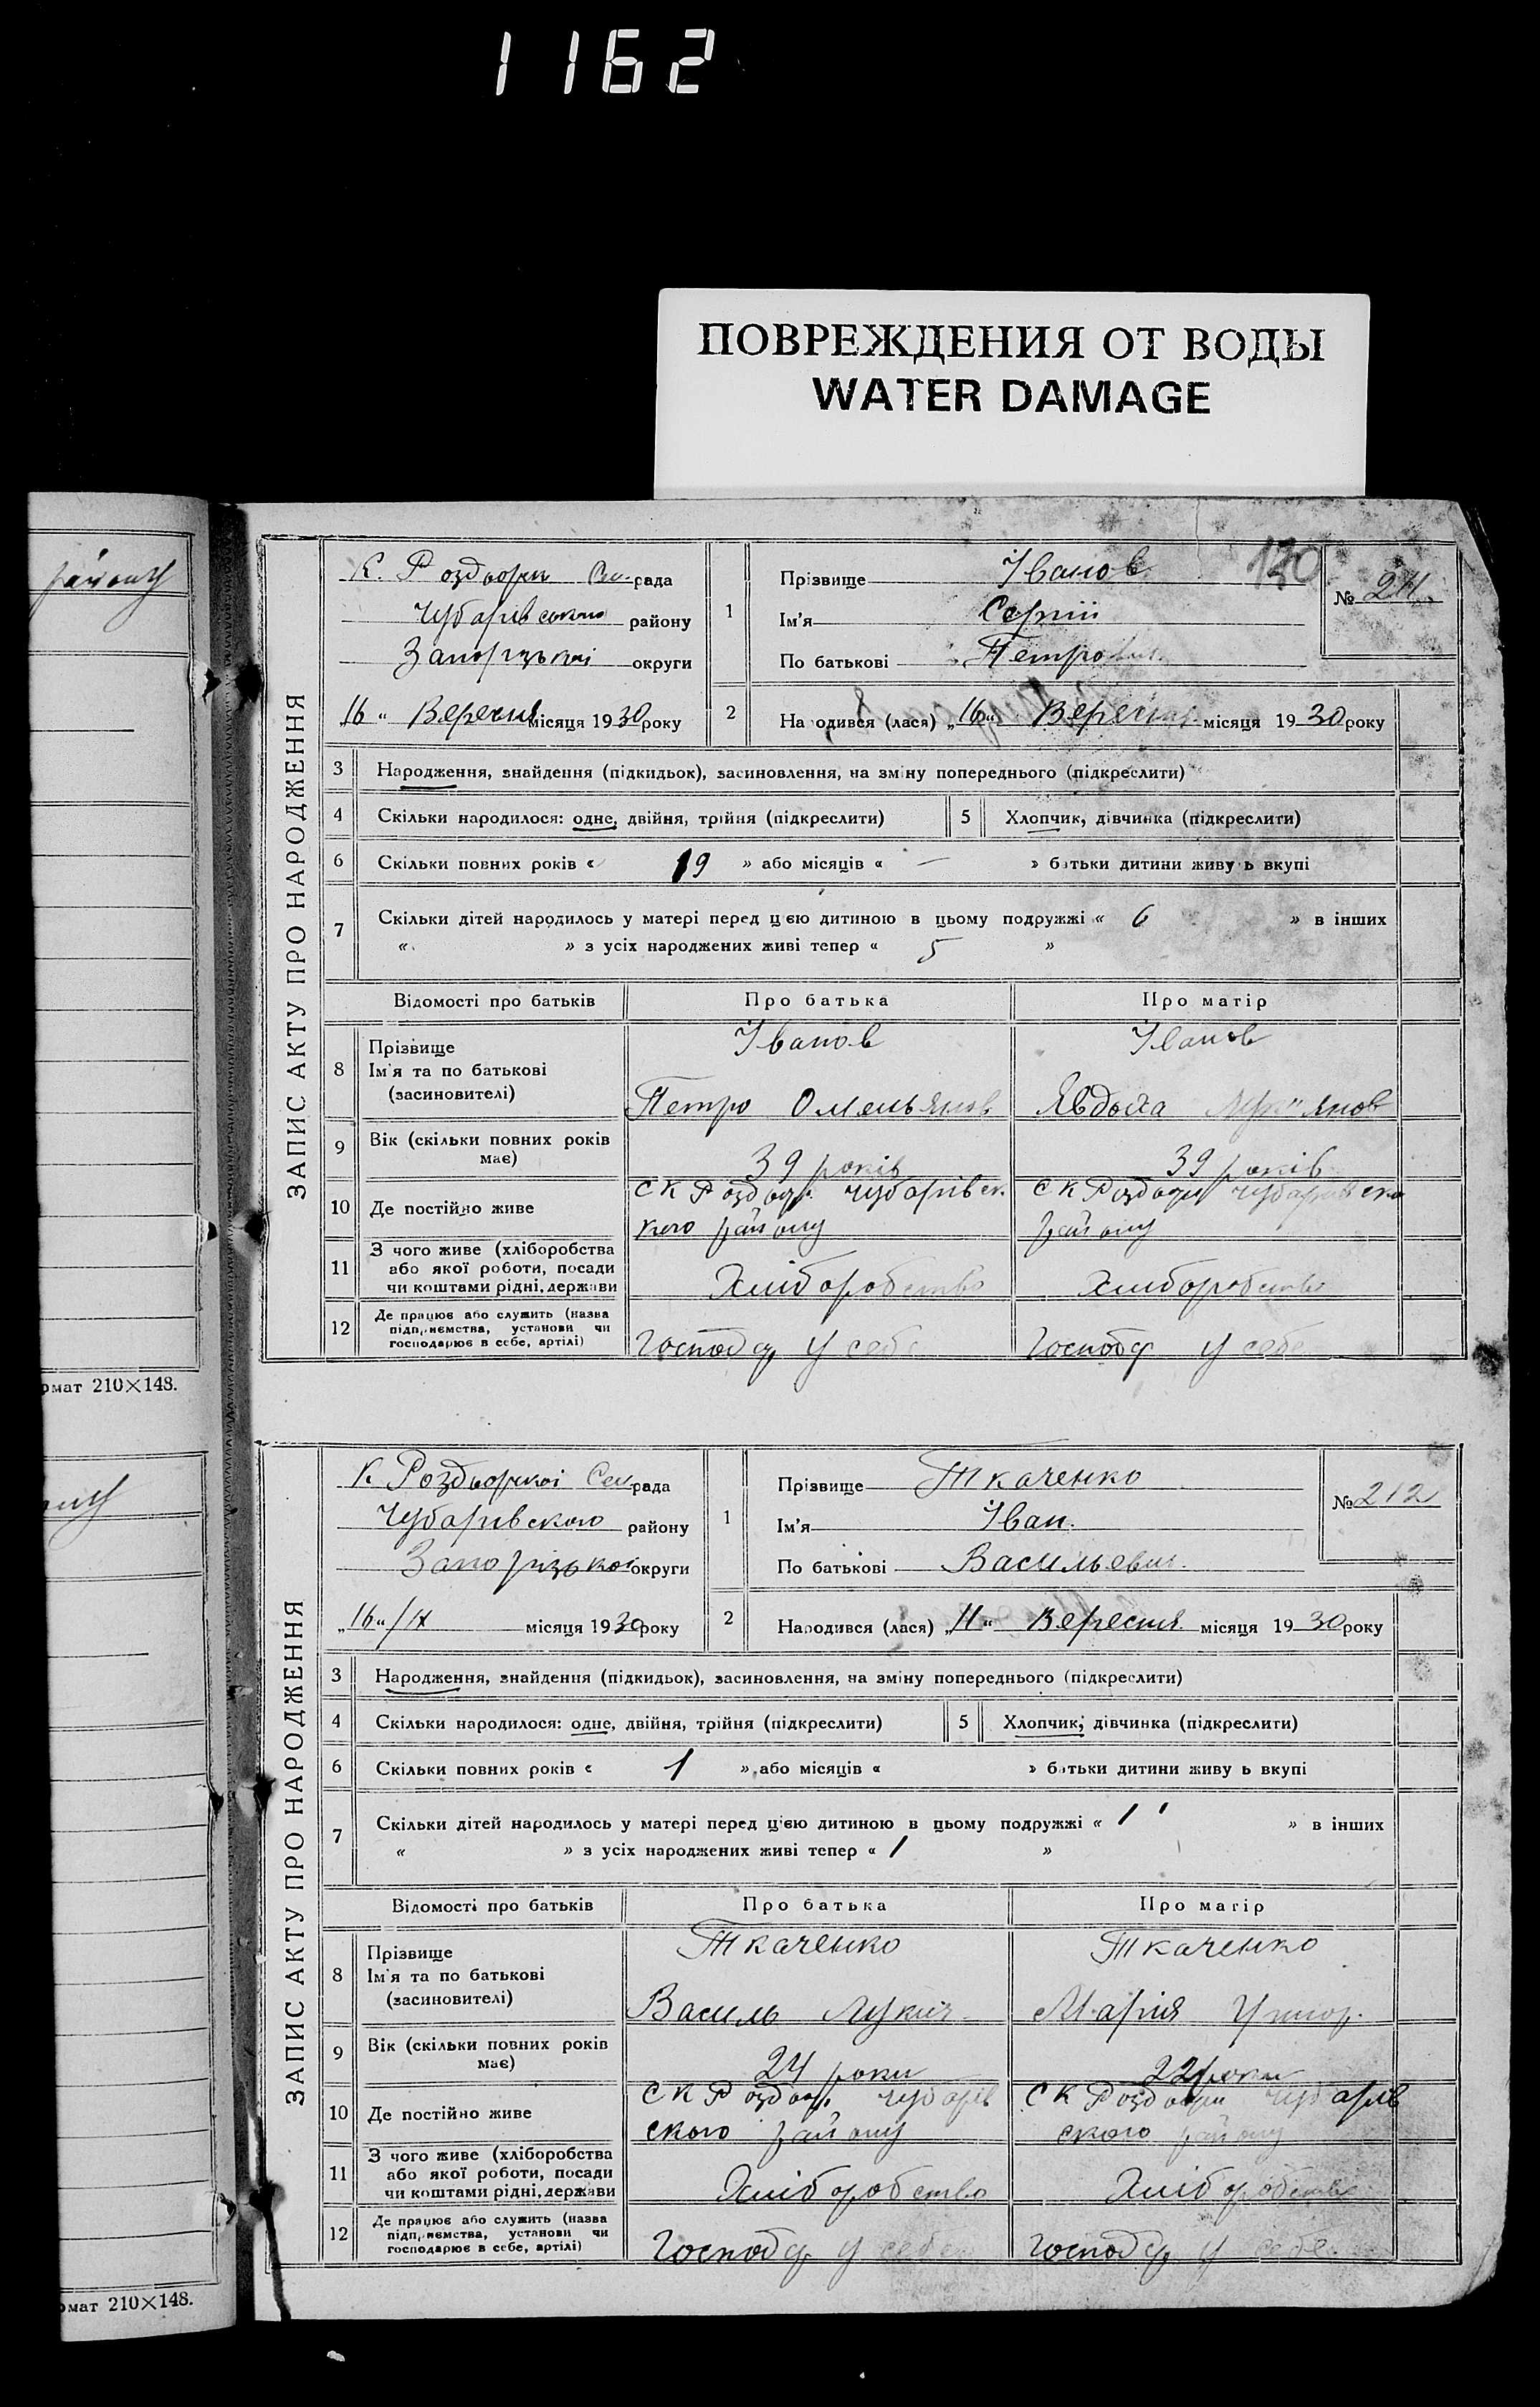 1162
ПОВРЕЖДЕНИЯ ОТ ВОДЫ
WATER DAMAGE
району
рмат 210×148.
рмат 210×148.
130
ЗАПИС АКТУ ПРО НАРОДЖЕННЯ
К. Роздори Сел. рада
Чубарівського району
Запорізької округи
16 „ Вересня місяця 1930 року
1 Прізвище Іванов
Ім'я Сергій
По батькові Петрович
№ 211
2 Народився (лася) „16“ Вересня місяця 1930 року
3 Народження, знайдення (підкидьок), засиновлення, на зміну попереднього (підкреслити)
4 Скільки народилося: одне, двійня, трійня (підкреслити) 5 Хлопчик, дівчинка (підкреслити)
6 Скільки повних років « 19 » або місяців « — » батьки дитини живуть вкупі
7 Скільки дітей народилось у матері перед цією дитиною в цьому подружжі « 6 » в інших
« » з усіх народжених живі тепер « 5 »
Відомості про батьків Про батька Про матір
8 Прізвище Іванов Іванов
Ім'я та по батькові
(засиновителі) Петро Омельянов Явдоха
9 Вік (скільки повних років
має) 39 років 39 років
10 Де постійно живе С К Роздор. Чубарівсь кого району С К Роздори Чубарівсько району
11 З чого живе (хліборобства
або якої роботи, посади
чи коштами рідні, держави Хліборобство Хліборобство
12 Де працює або служить (назва
підприємства, установи чи
господарює в себе, артілі) Господ у себе Господ у себе
ЗАПИС АКТУ ПРО НАРОДЖЕННЯ
К. Роздорської Сел. рада
Чубарівського району
Запорізької округи
„16“ /IX місяця 1930 року
1 Прізвище Ткаченко
Ім'я Іван.
По батькові Васильевич.
№ 212
2 Народився (лася) „11“ Вересня місяця 1930 року
3 Народження, знайдення (підкидьок), засиновлення, на зміну попереднього (підкреслити)
4 Скільки народилося: одне, двійня, трійня (підкреслити) 5 Хлопчик, дівчинка (підкреслити)
6 Скільки повних років « 1 » або місяців « » батьки дитини живуть вкупі
7 Скільки дітей народилось у матері перед цією дитиною в цьому подружжі « 1 » в інших
« » з усіх народжених живі тепер « 1 »
Відомості про батьків Про батька Про матір
8 Прізвище Ткаченко Ткаченко
Ім'я та по батькові
(засиновителі) Василь Лукич Марія
9 Вік (скільки повних років
має) 24 роки 22 роки
10 Де постійно живе С К Роздор. Чубарів ского району С К Роздори Чубарів ского району
11 З чого живе (хліборобства
або якої роботи, посади
чи коштами рідні, держави Хліборобство Хліборобство
12 Де працює або служить (назва
підприємства, установи чи
господарює в себе, артілі) Господ у себе Господ у себе